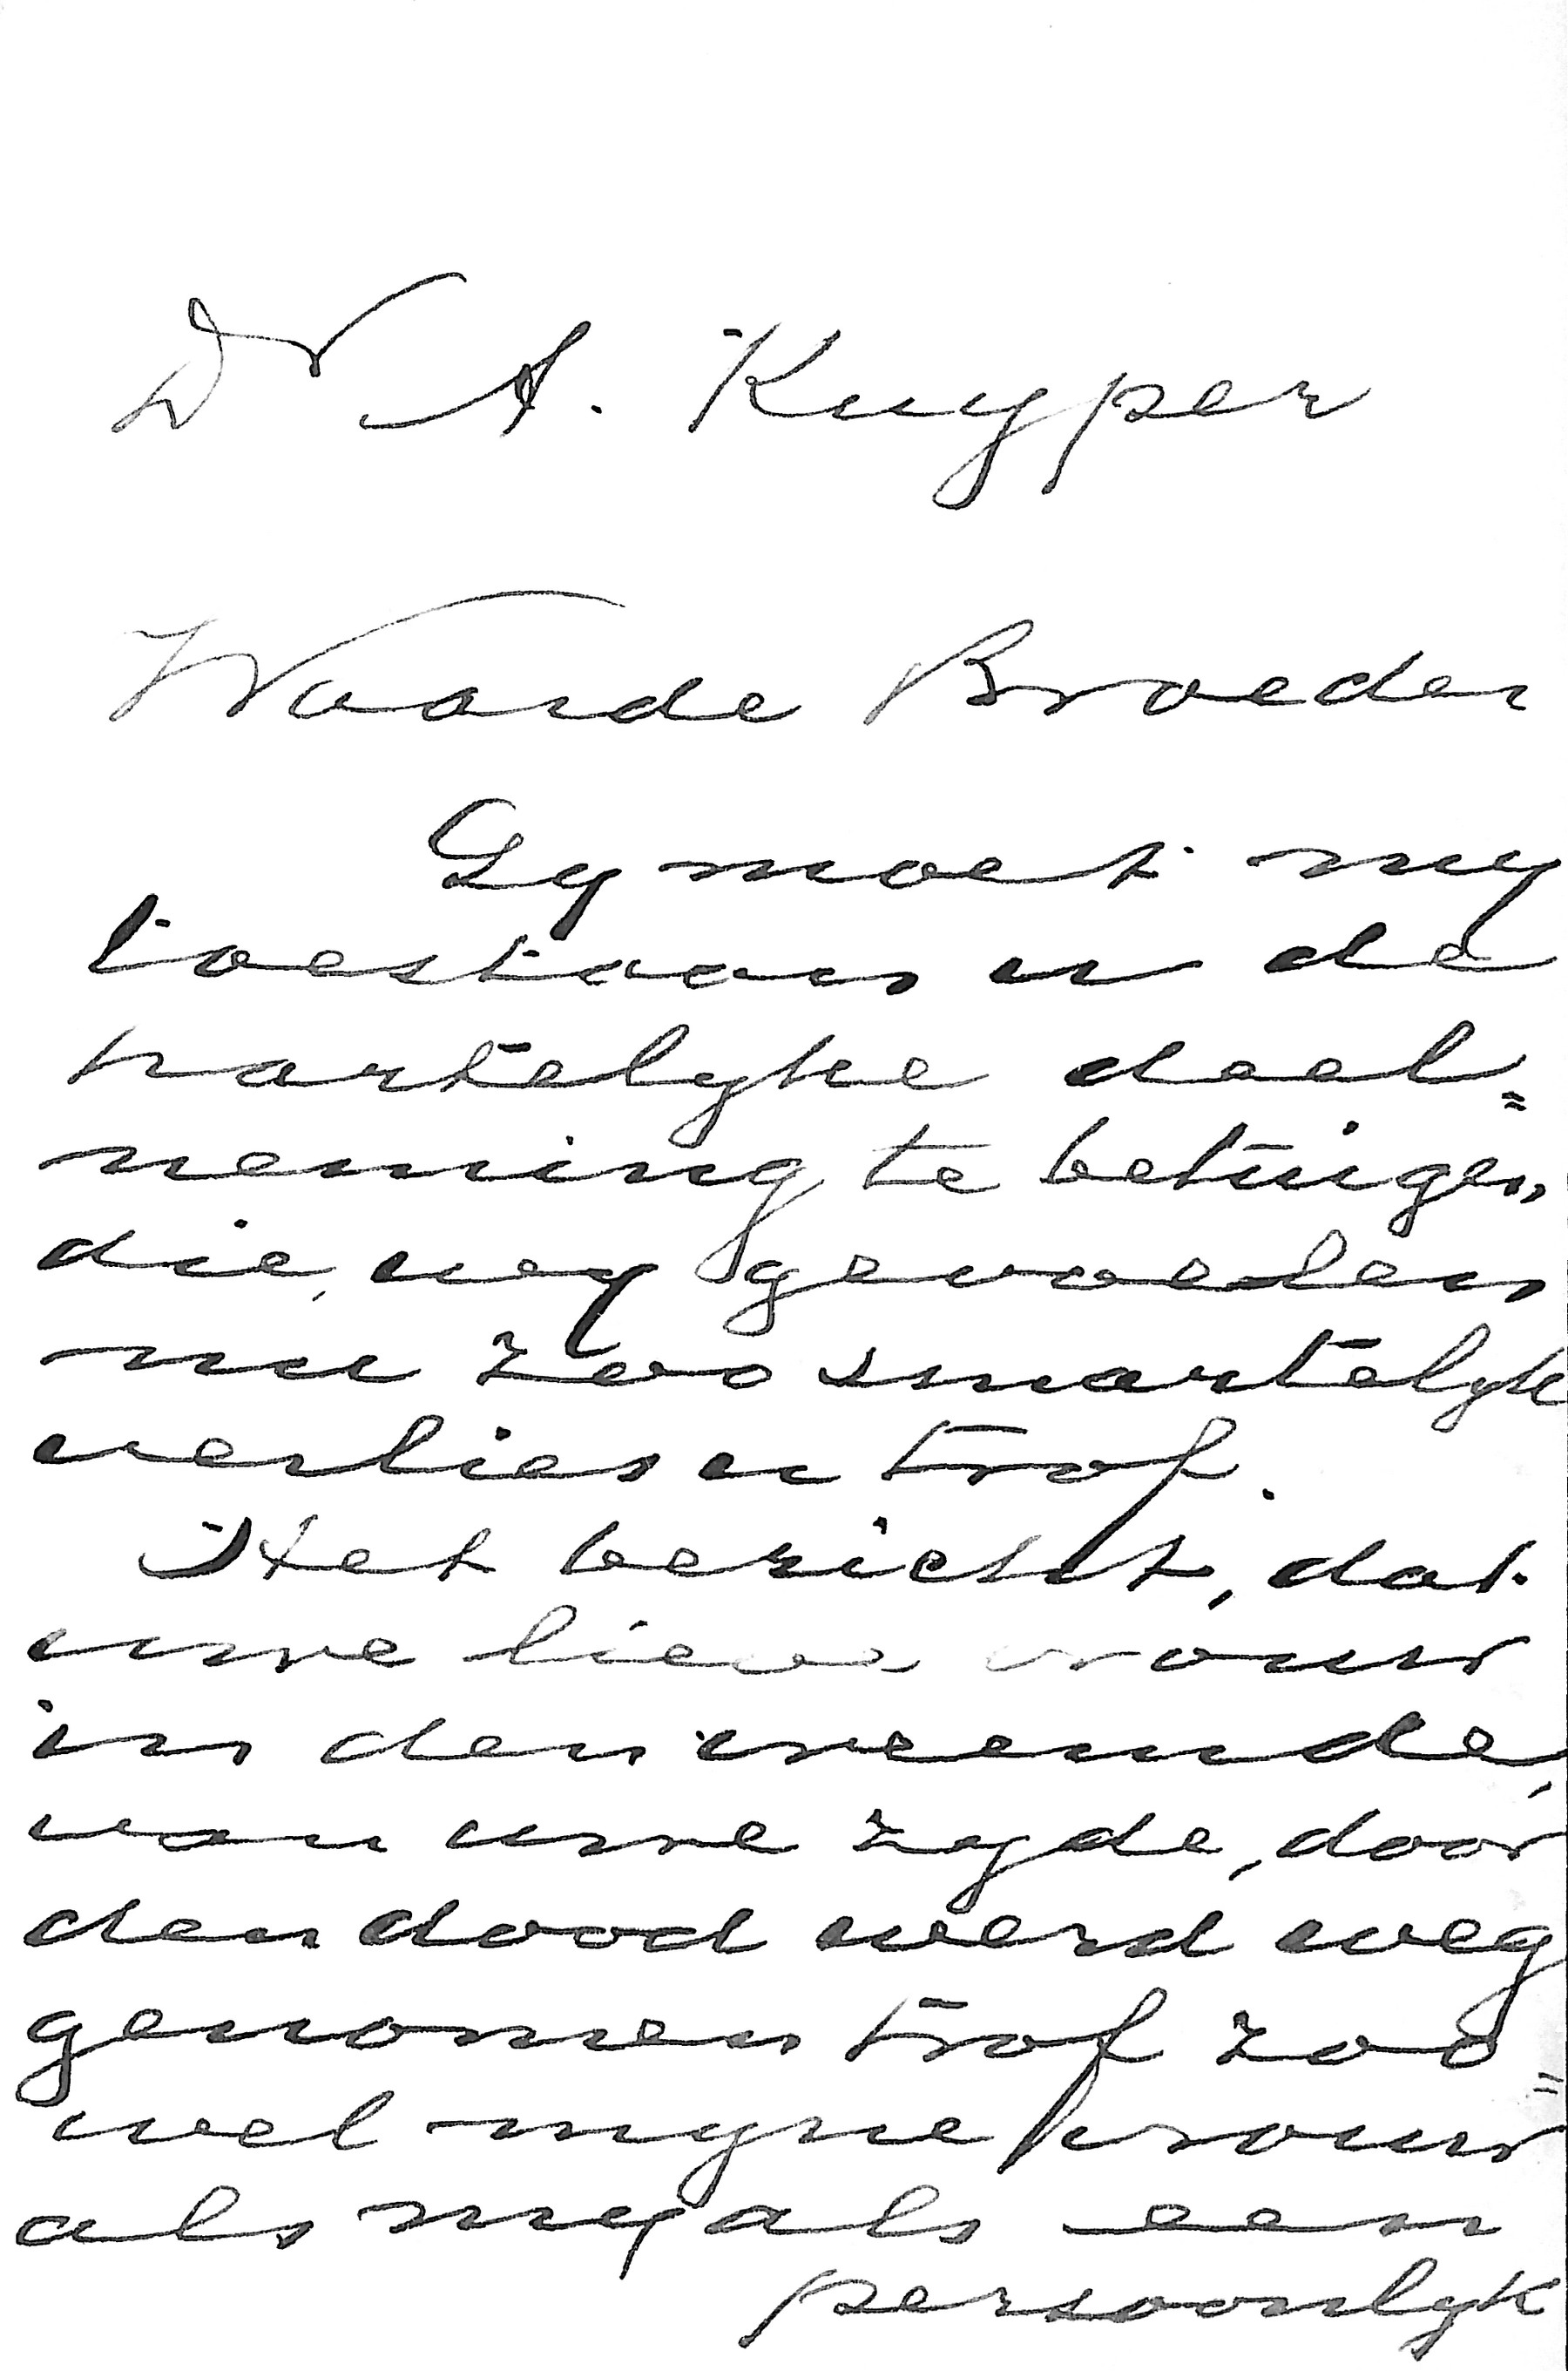 Dr A. Kuyper
Waarde Broeder
Gy moet my
toestaan u de
hartelyke deel=
neming te betuigen,
die, wy gevoelen
nu zoo smartelyk
verlies u trof.
Het bericht, dat
uwe lieve vrouw
in den vreemde,
van uwe zyde, door
den dood werd weg
genomen trof zoo=
wel myne vrouw
als my als een
persoonlyk